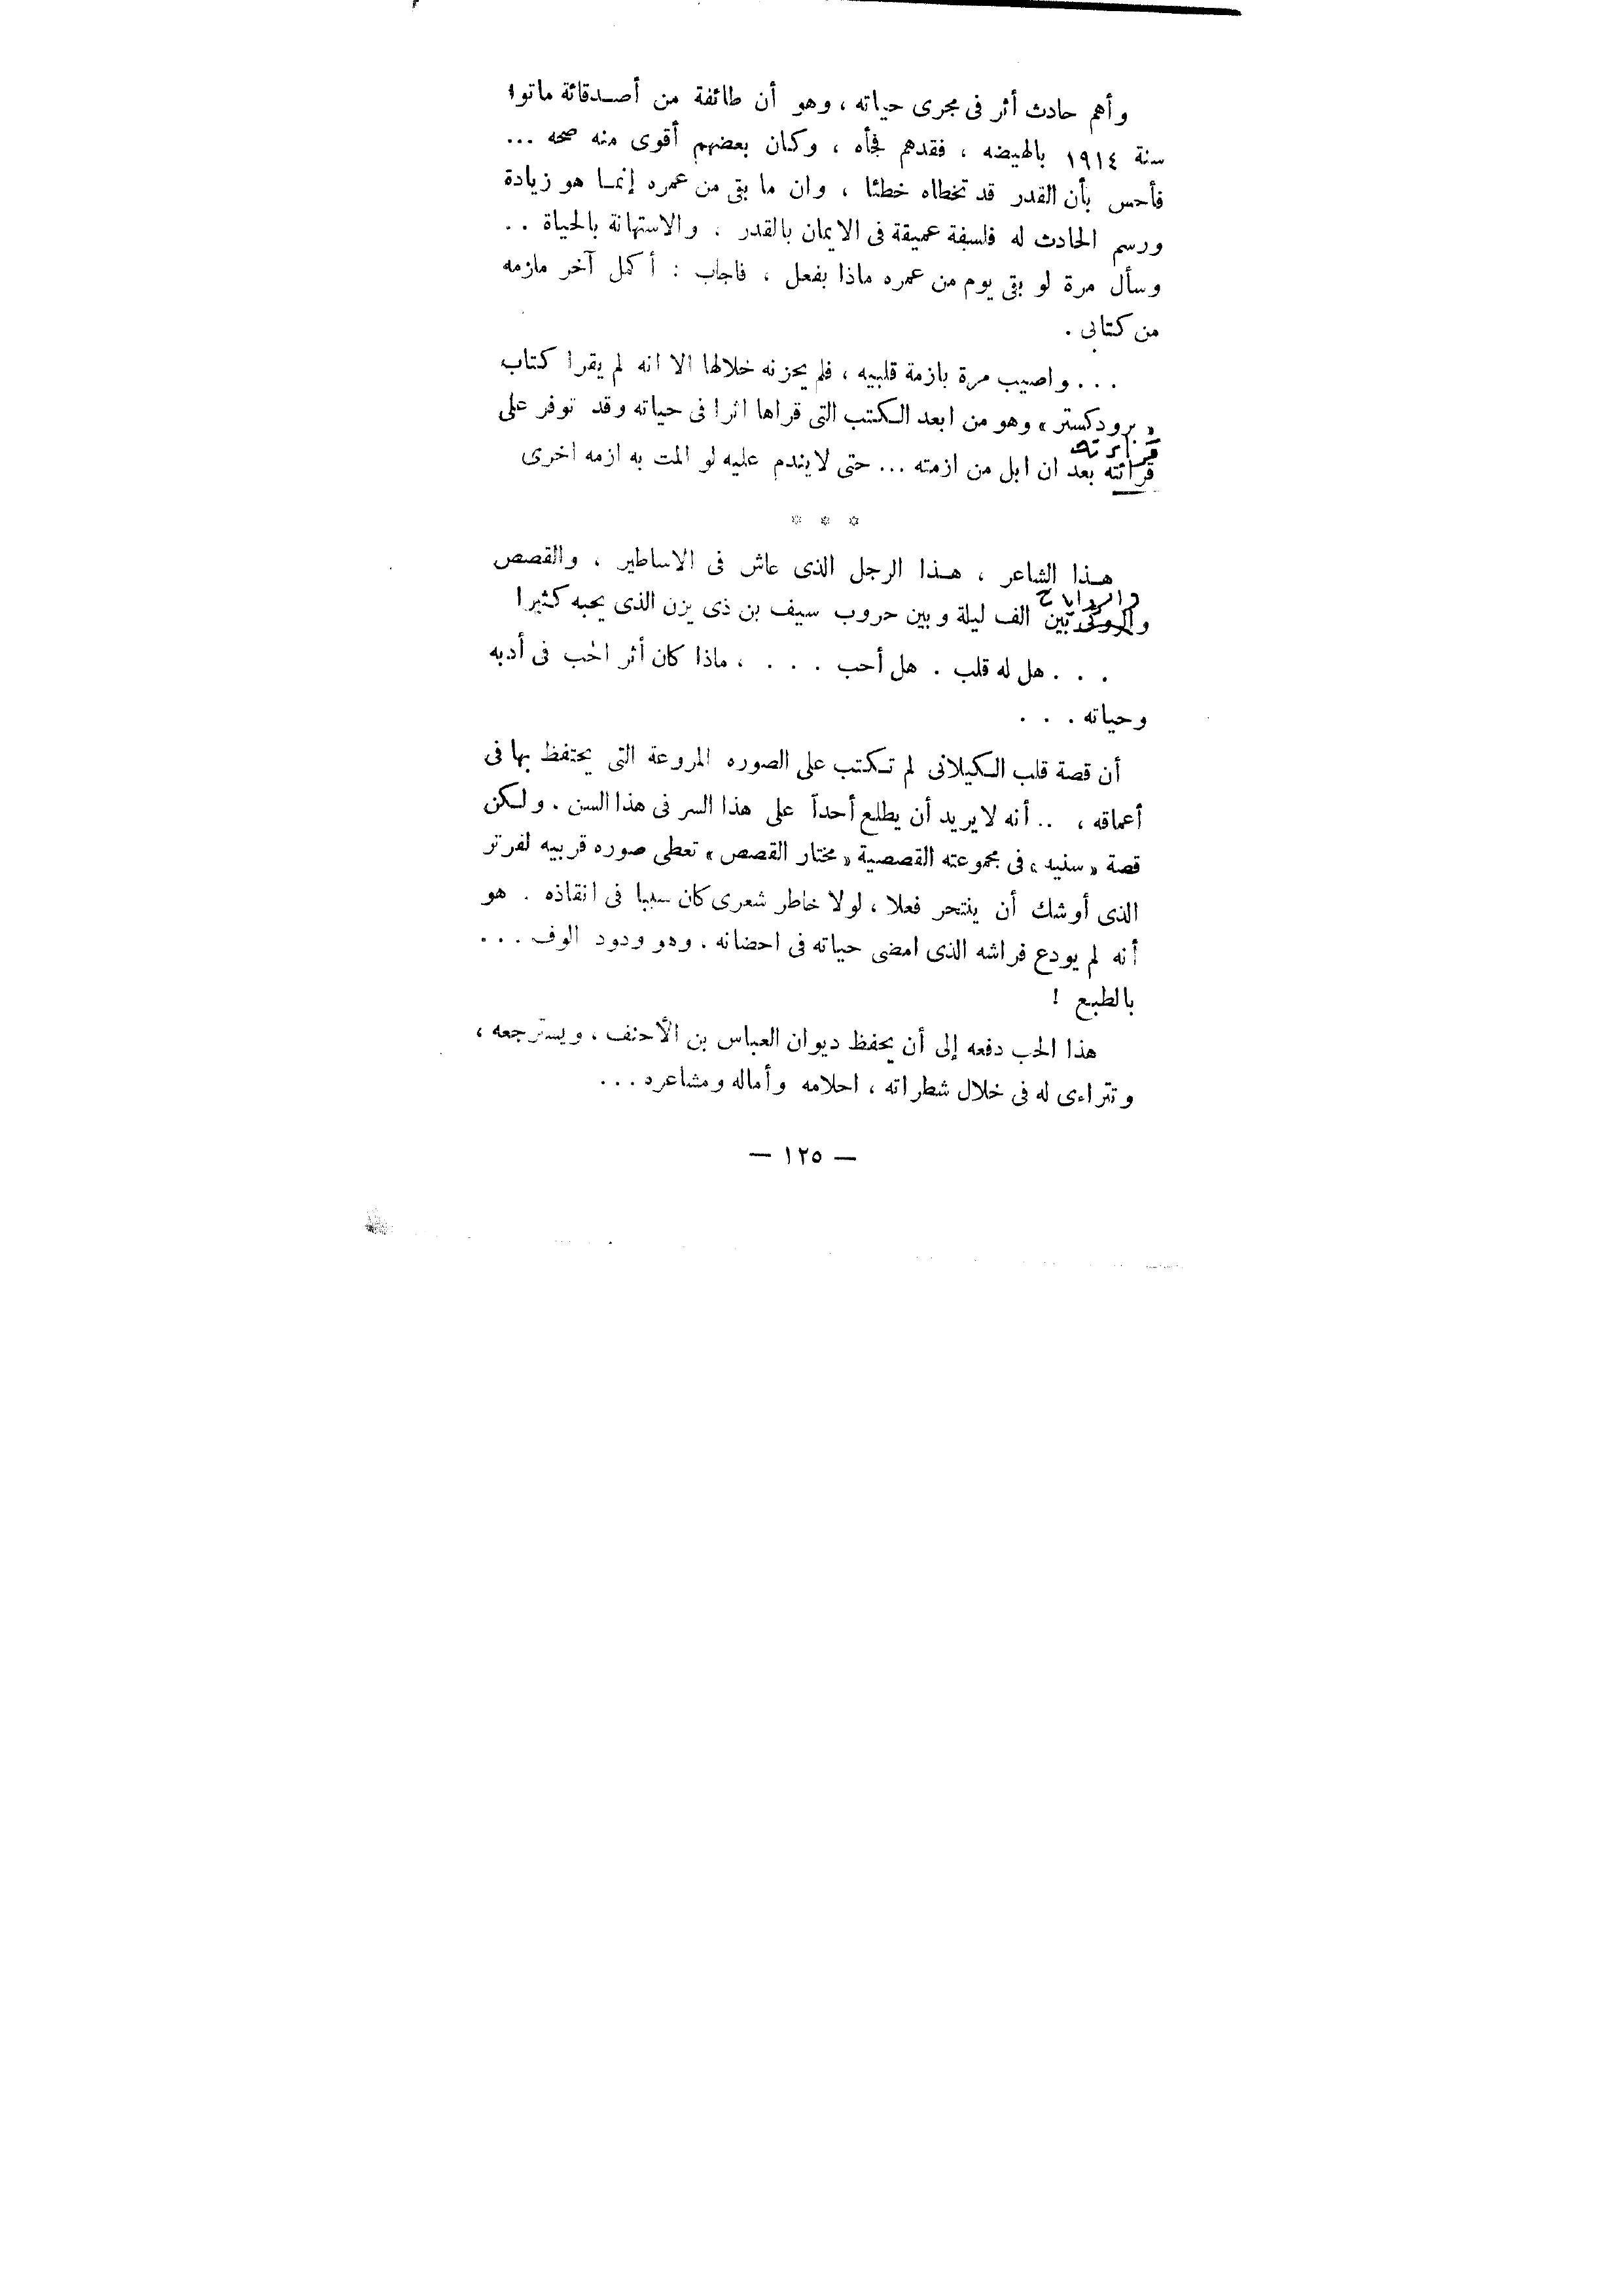 وأهم حادث أثر فى مجرى حياته ، وهو أن طائفة من أصدقائة ماتوا
سنة ١٩١٤ بالهيضه ، فقدهم فجأه ، وكان بعضهم أقوى منه صحه ...
فأحس بأن القدر قد تخطاه خطئا ، وان ما بقى من عمره إنما هو زيادة
ورسم الحادث له فلسفة عميقة فى الايمان بالقدر . والاستهانة بالحياة . .
وسأل مرة لو بقى يوم من عمره ماذا بفعل ، فاجاب : أكمل آخر مازمه
من كتابى .
. . . واصيب مرة بازمة قلبيه ، فلم يحزنه خلالها الا انه لم يقرا كتاب
« برودكستر » وهو من ابعد الكتب التى قراها اثرا فى حياته وقد توفر على
قراءته
قرائته بعد ان ابل من ازمته ... حتى لايندم عليه لو المت به ازمه اخرى
* * *
هذا الشاعر ، هذا الرجل الذى عاش فى الاساطير ، والقصص
والروايات
بين الف ليلة وبين حروب سيف بن ذى يزن الذى يحبه كثيرا
. . . هل له قلب . هل أحب . . . ، ماذا كان أثر الحب فى أدبه
وحياته . . .
أن قصة قلب الكيلانى لم تكتب على الصوره المروعة التى يحتفظ بها فى
أعماقه ، .. أنه لايريد أن يطلع أحداً على هذا السر فى هذا السن . ولكن
قصة « سنيه » فى مجموعته القصصية « مختار القصص » تعطى صوره قريبيه لفرتر
الذى أوشك أن ينتحر فعلا ، لولا خاطر شعرى كان سببا فى انقاذه . هو
أنه لم يودع فراشه الذى امضى حياته فى احضانه . وهو ودود الوف . . .
بالطبع !
هذا الحب دفعه إلى أن يحفظ ديوان العباس بن الأحنف ، ويسترجعه ،
وتتراءى له فى خلال شطراته ، احلامه وأماله ومشاعره . . .
— ١٢٥ —